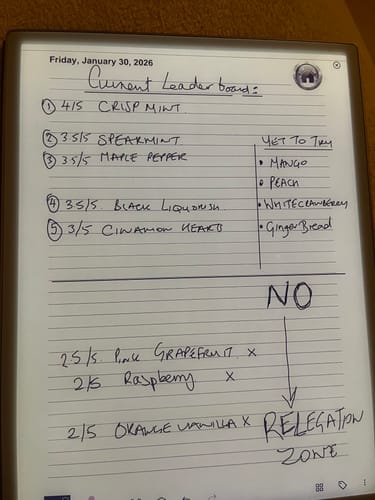 Friday, January 30, 2026
Current Leader board:
① 4/5 CRISP MINT
② 3.5/5 SPEARMINT
③ 3.5/5 MAPLE PEPPER
④ 3.5/5 BLACK LIQUORISH
⑤ 3/5 CINAMON HEARTS
YET TO TRY
• MANGO
• PEACH
• WHITE CRANBERRY
• Ginger Bread
NO
2.5/5 PINK GRAPEFRUIT X
2/5 Raspberry X
2/5 ORANGE VANILLA X
RELEGATION
ZONE